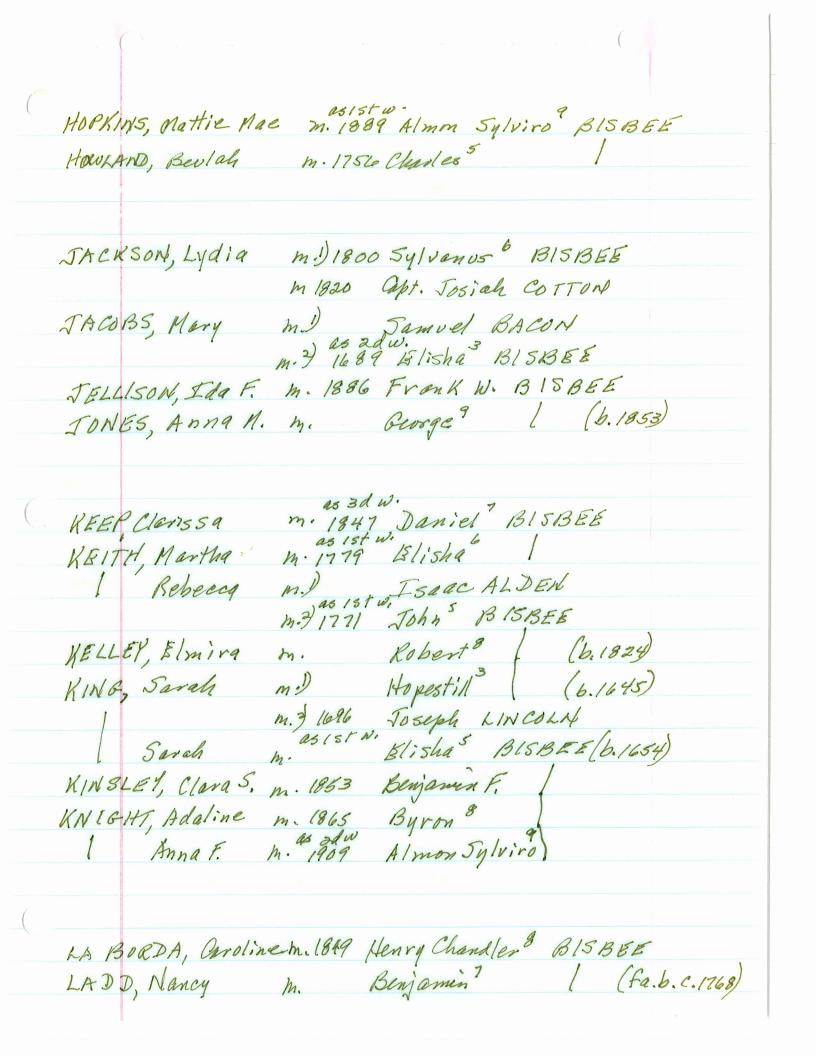 as 1st w.
HOPKINS, Mattie Mae m. 1889 Almon Sylviro⁹ BISBEE
HOWLAND, Beulah m. 1756 Charles⁵ |
JACKSON, Lydia m. 1) 1800 Sylvanus⁶ BISBEE
m 1820 Capt. Josiah COTTON
JACOBS, Mary m. 1) Samuel BACON
as 2d w.
m. 2) 1689 Elisha³ BISBEE
JELLISON, Ida F. m. 1886 Frank W. BISBEE
JONES, Anna M. m. George⁹ | (b. 1853)
as 3d w.
KEEP, Clarissa m. 1847 Daniel⁷ BISBEE
as 1st w.
KEITH, Martha m. 1779 Elisha⁶ |
| Rebecca m. 1) Isaac ALDEN
as 1st w.
m. 2) 1771 John⁵ BISBEE
KELLEY, Elmira m. Robert⁸ (b. 1824)
KING, Sarah m. 1) Hopestill³ (b. 1645)
m. 2) 1696 Joseph LINCOLN
as 1st w.
| Sarah m. Elisha⁵ BISBEE (b. 1654)
KINSLEY, Clara S. m. 1853 Benjamin F.
KNIGHT, Adaline m. 1865 Byron⁸
as 2d w
| Anna F. m. 1909 Almon Sylviro⁹
LA BORDA, Caroline m. 1849 Henry Chandler⁸ BISBEE
LADD, Nancy m. Benjamin⁷ | (fa. b. c. 1768)